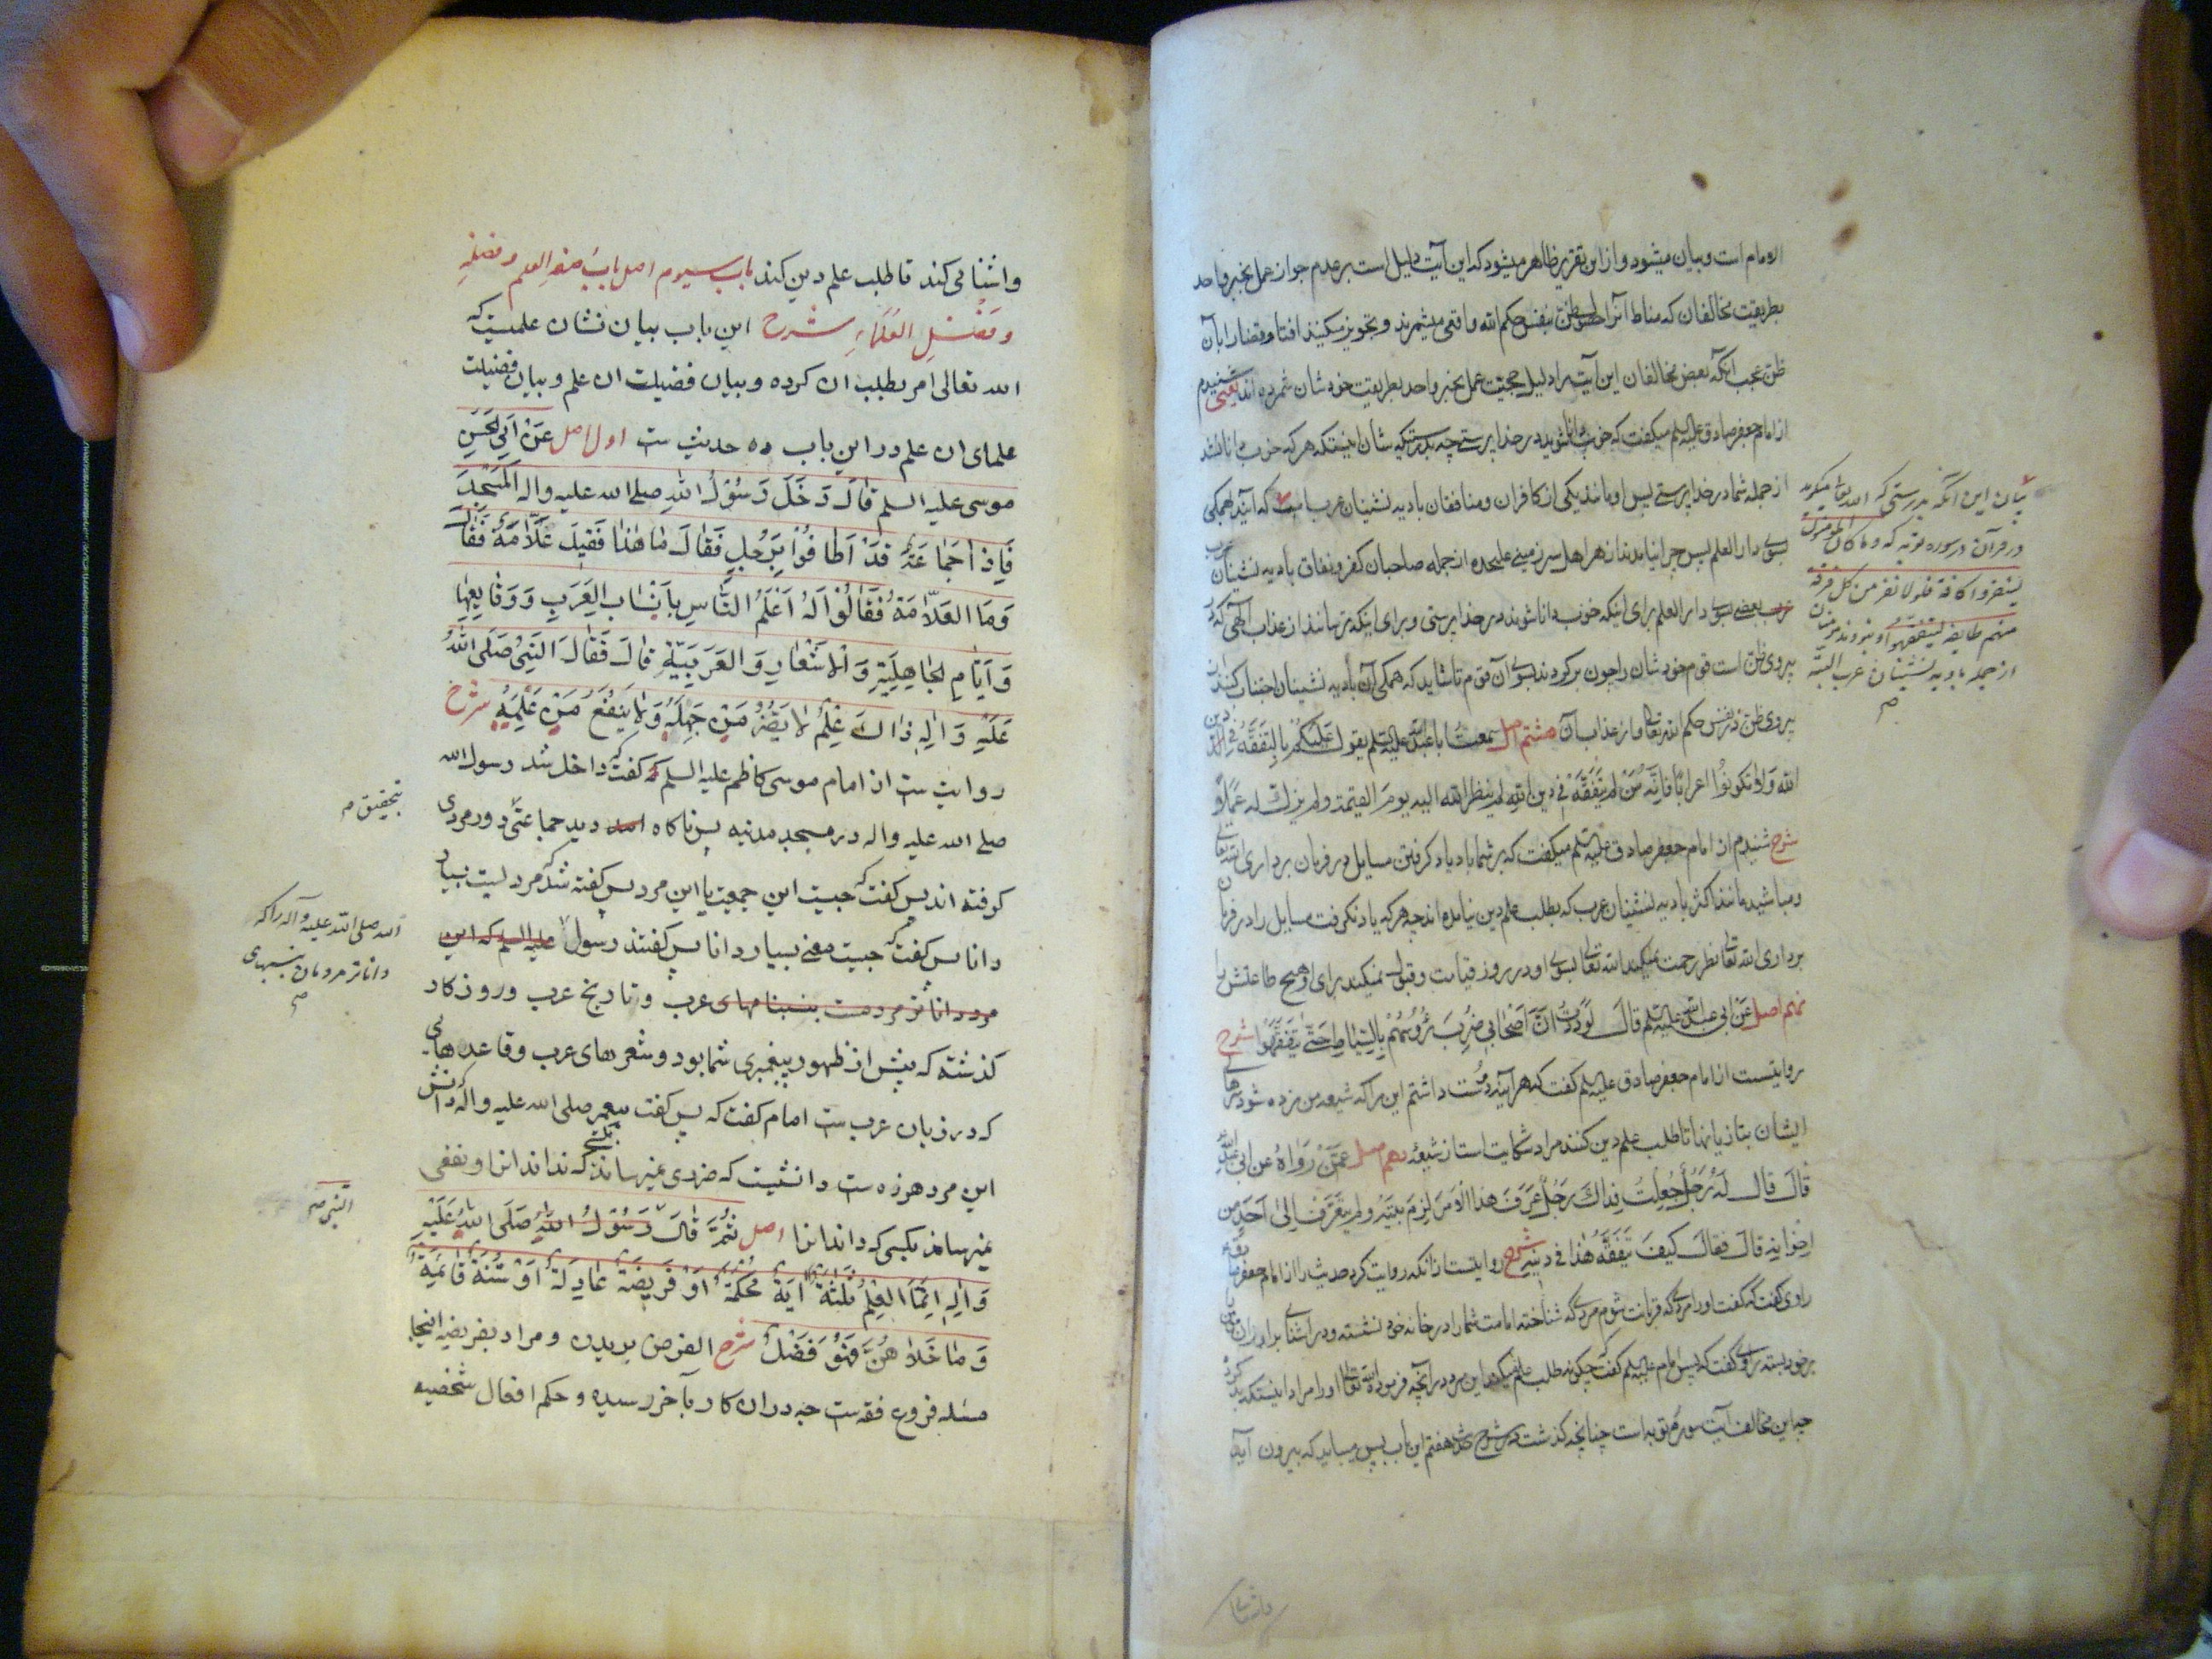 الوهام است و بیان میشود و ازین تقریر ظاهر میشود که این آیت دلیل است بر عدم جواز عمل بخبر واحد
بطریقت مخالفان که مناط آنرا حصول ظن بنفس حکم الله واقعی میشمرند و تجویز میکنند افتا و قضا را بآن
ظن عجب آنکه بعض مخالفان این آیت را دلیل حجیت عمل بخبر واحد بطریقت خودشان شمرده اند یعنی شنیدم
از امام جعفر صادق علیه السلم میگفت که خوب دانا شوید در خداپرستی چه بدرستیکه شان اینستکه هر که خوب دانا نشد
از جمله شما در خداپرستی پس او مانند یکی از کافران و منافقان بادیه نشینان عرب است که آیند همگی
بسوی دار العلم پس چرا نیامدند از هر اهل سرزمینی علیحده از جمله صاحبان کفر و نفاق بادیه نشینان عرب
عرب بعضی بسوی دار العلم برای اینکه خوب دانا شوند در خداپرستی و برای اینکه ترسانند از عذاب الهی که در
پیروی ظن است قوم خودشان را چون برگردند بسوی آن قوم تا شاید که همگی آن بادیه نشینان اجتناب کنند از
پیروی ظن در نفس حکم الله تعالی و از عذاب آن هشتم اصل سمعت ابا عبد الله علیه السلم یقول علیکم بالتفقه فی دین
الله ولا تکونوا اعرابا فانه من لم یتفقه فی دین الله لم ینظر الله الیه یوم القیمة ولم یزک له عملا
شرح شنیدم از امام جعفر صادق علیه السلم میگفت که بر شما باد یاد گرفتن مسایل در فرمان برداری الله تعالی
و مباشید مانند اکثر بادیه نشینان عرب که بطلب علم دین نیامده اند چه هر که یاد نگرفت مسایل را در فرمان
برداری الله تعالی نظر رحمت نمیکند الله تعالی بسوی او در روز قیامت و قبول نمیکند برای او هیچ طاعتش را
نهم اصل عن ابی عبد الله علیه السلم قال لوددت ان اصحابی ضربت رؤسهم بالسیاط حتی یتفقهوا شرح
روایتست از امام جعفر صادق علیه السلم گفت که هر آینه دوست داشتم این را که شیعه من زده شود سرهای
ایشان بتازیانها تا طلب علم دین کنند مراد شکایت است از شیعه دهم اصل عمن رواه عن ابی عبد الله
قال قال له رجل جعلت فداک رجل عرف هذا الامر لزم بیته ولم یتعرف الی احد من
اخوانه قال فقال کیف یتفقه هذا فی دینه شرح روایتست از آنکه روایت کرد حدیث را از امام جعفر صادق
راوی گفت که گفت او را مردی که قربانت شوم مردی که شناخته امامت شما را در خانه خود نشسته و در آشنایی برادران مؤمن
بر خود بسته راوی گفت که پس امام علیه السلم گفت چگونه طلب علم میکند این مرد در آنچه فرموده الله تعالی او را مراد اینستکه بد کرد
چه این مخالف آیت سوره توبه است چنانچه گذشت در شرح حدیث هفتم این باب پس میباید که بیرون آید
بیان این آنکه بدرستی که الله تعالی میگوید
در قرآن در سوره توبه که وما کان المؤمنون
لینفروا کافة فلولا نفر من کل فرقة
منهم طایفة لیتفقهوا
از جمله بادیه نشینان عرب البته
واشنائی
واشنائی کند تا طلب علم دین کند باب سیوم اصل باب صفة العلم وفضله
وفضل العلماء شرح این باب بیان نشان علمیست که
الله تعالی امر بطلب ان کرده و بیان فضیلت ان علم و بیان فضیلت
علمای ان علم در این باب ده حدیث ست اول اصل عن ابی الحسن
موسی علیه السلم قال دخل رسول الله صلی الله علیه واله المسجد
فاذا جماعة قد اطافوا برجل فقال ما هذا فقیل علامة فقال
وما العلامة فقالوا له اعلم الناس بانساب العرب ووقایعها
وایام الجاهلیة والاشعار والعربیة قال فقال النبی صلی الله
علیه واله ذاک علم لا یضر من جهله ولا ینفع من علمه شرح
روایت ست از امام موسی کاظم علیه السلم که گفت که داخل شد رسول الله
صلی الله علیه واله در مسجد مدینه پس ناکاه دید جماعتی دور مردی
گرفته اند پس گفت که چیست این جمعیت با این مرد پس گفته شد که مردیست بسیار
دانا پس گفت که چیست معنی بسیار دانا پس گفتند رسول علیه السلم که این
مرد داناتر مردمست بنسبنامهای عرب و تاریخ عرب و روزکار
گذشته که پیش از ظهور پیغمبری شما بود و شعرهای عرب و قاعدهای
که در زبان عرب ست امام گفت که پس گفت پیغمبر صلی الله علیه واله که دانش
این مرد هرزه ست دانشیست که ضرری نمیرساند بکسی که نداند انرا و نفعی
نمیرساند بکسی که داند انرا اصل ثم قال رسول الله صلی الله علیه
واله انما العلم ثلثة آیة محکمة او فریضة عادلة او سنة قائمة
وما خلاهن فهو فضل شرح الفرض بریدن و مراد بفریضه اینجا
مسئله فروع فقه ست چه دران کار بآخر رسیده و حکم افعال شخصیه
بتحقیق م
الله صلی الله علیه وآله را که
داناتر مردمان بنسبهای
النبی صح